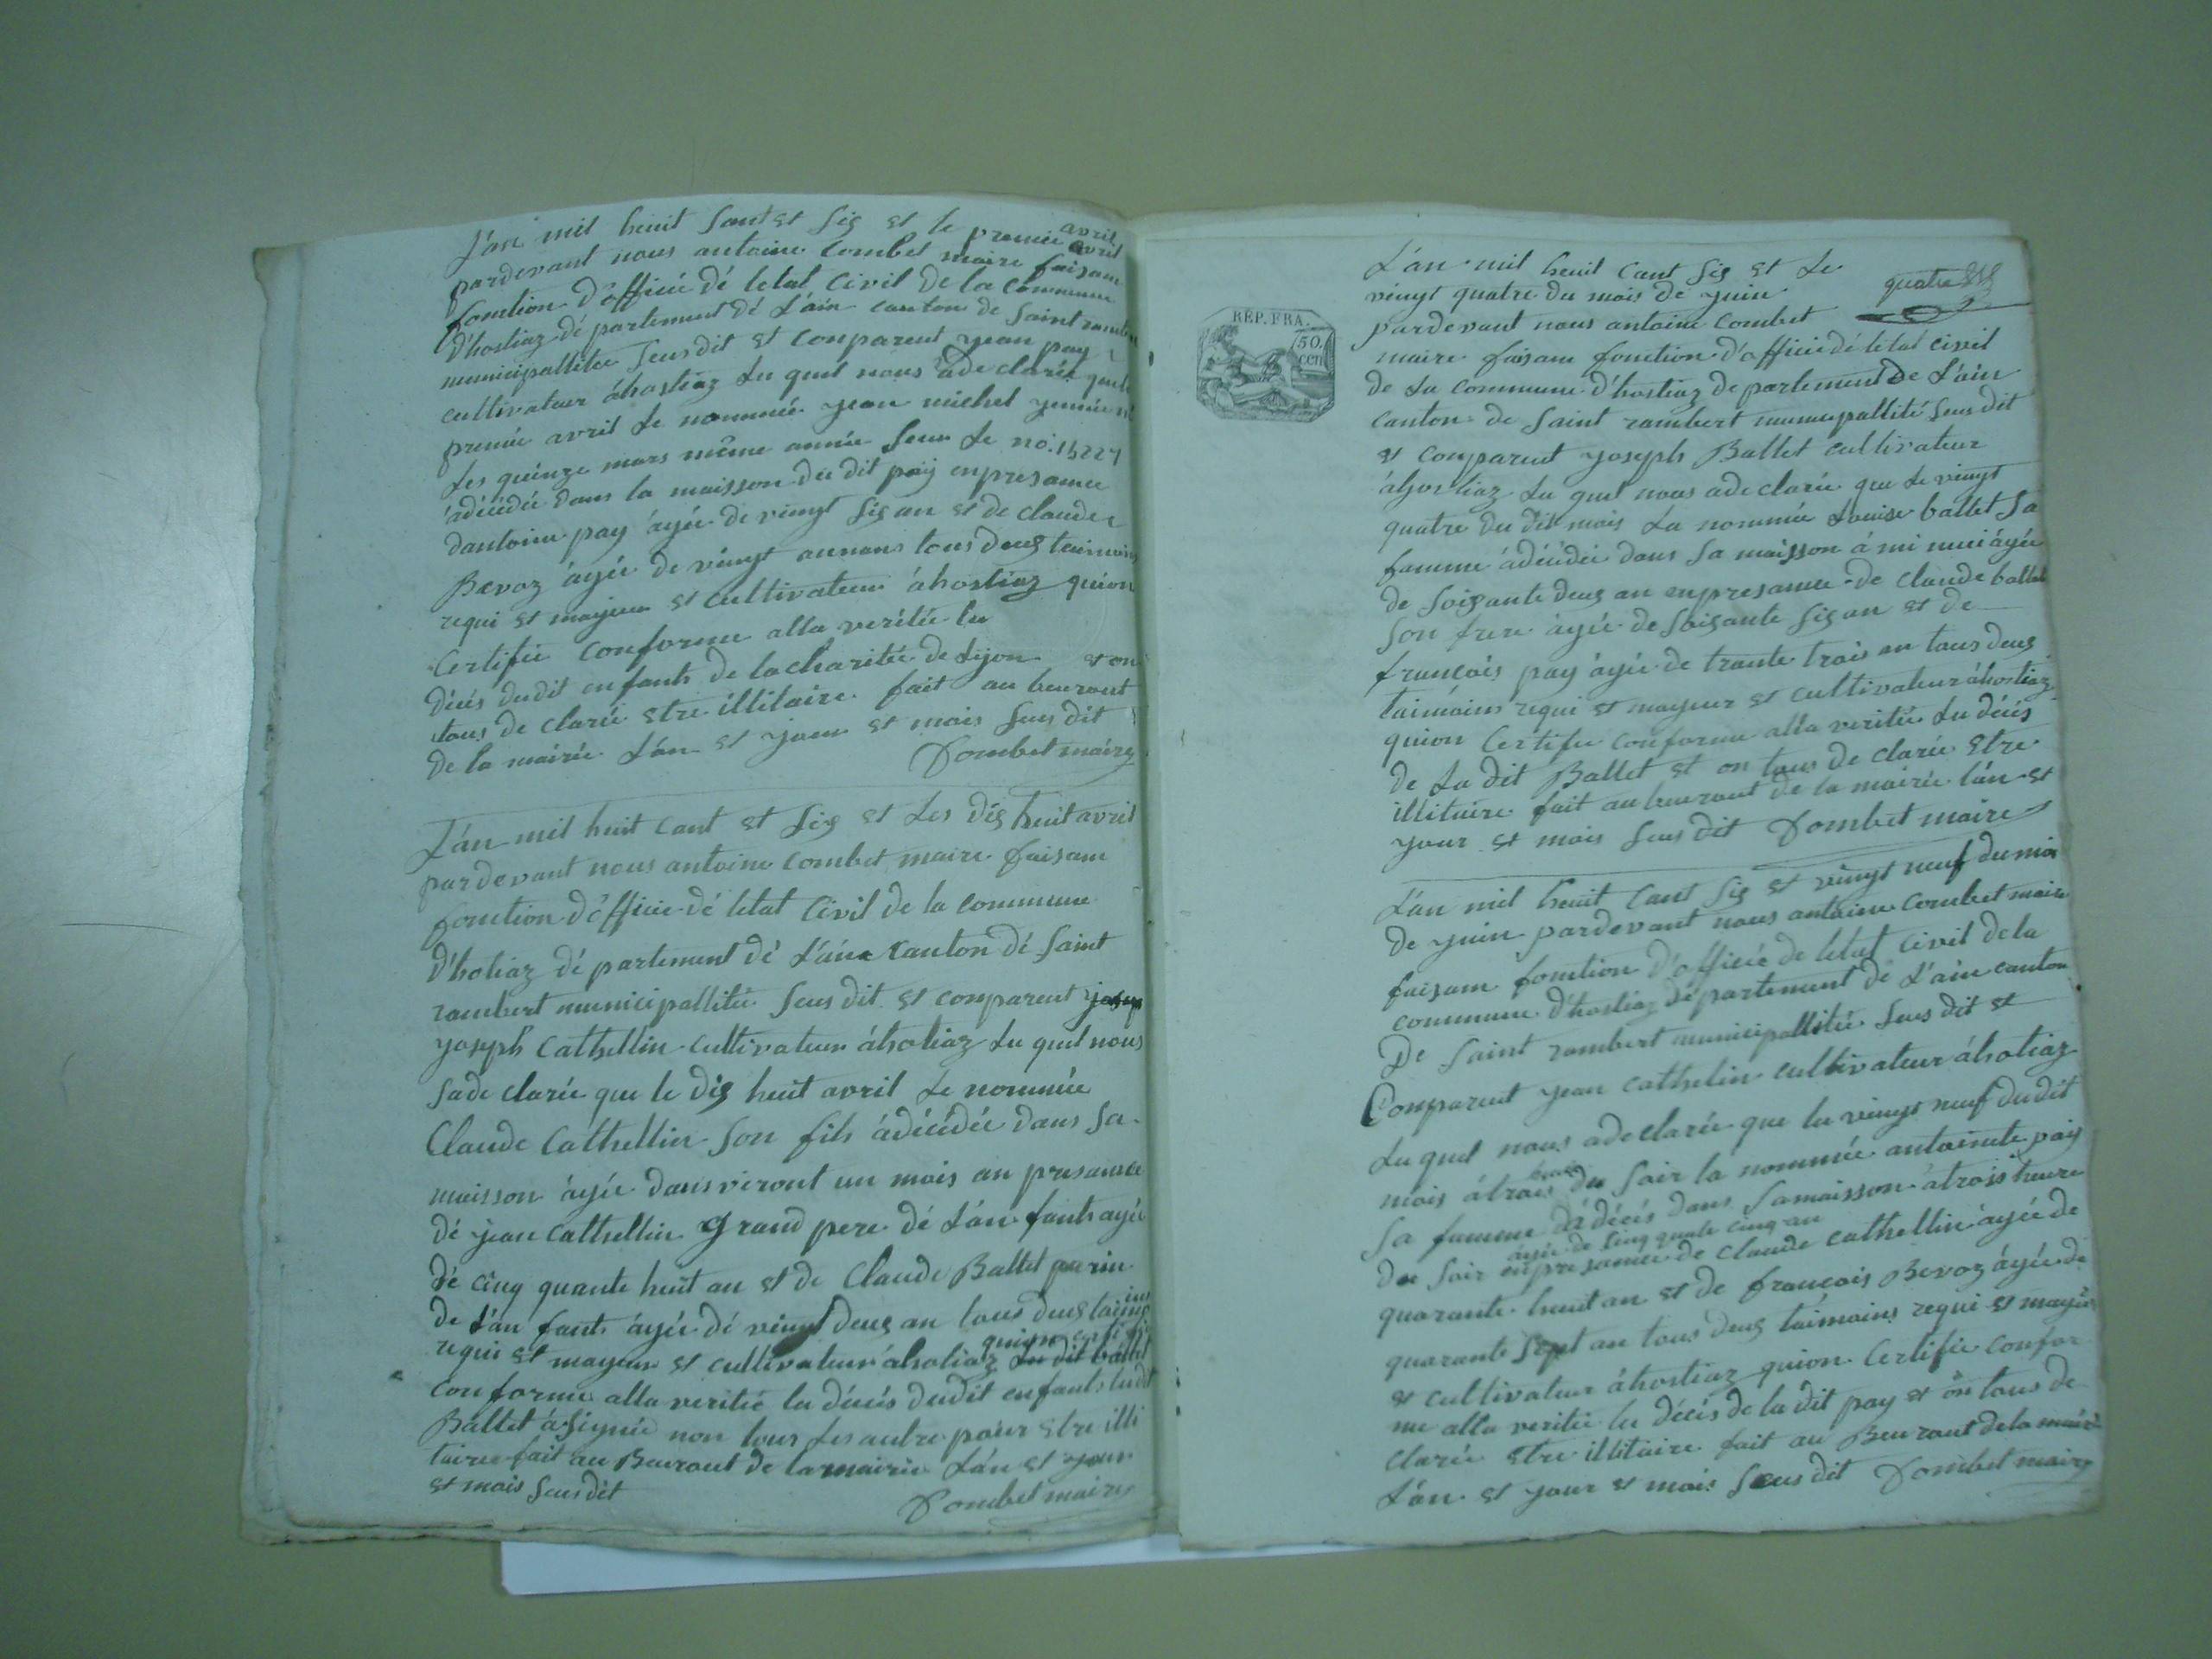 L'an mil heuit sant et sig et le premié avril
avril
pardevant nous antoine Combet maire faisam
fonction d'officié dé letat Civil de la Commune
D'hostiaz dé partement dé L'ain canton de Saint ramber
municipallitée seus dit et conparent yean pay
cultivateur áhostiaz Lu quel nous ade clarée quele
premié avril Le nommée yean michel
Les quinze mars même année seur Le no. 15227
adécédée dans la maisson du dit paÿ enpresance
dantoine pay áyée de vingt sig an et de claude
Bevoz áyée de vingt an tous deug teimoins
requi et mayeur et cultivateur áhostiaz quion
Certifée Conforme alla veritée lu
décés dudit enfants de la charitée de Lyon et on
tous de clarée etre illitaire fait au beuraut
de la mairie L'an et jour et mois seus dit
Combet maire
L'an mil huit cant et sig et Les dig heuit avril
pardevant nous antoine Combet maire faisam
fonction d'officié dé letat Civil de la commune
D'hotiaz dé partement dé L'ain canton dé saint
rambert municipallitée seus dit et conparent
yoseph Cathellin cultivateur áhotiaz Lu quel nous
sade clarée que le dig heuit avril Le nommée
Claude Cathellin son fils ádécédée dans sa
maisson áyée dans viront un mois an presance
dé jean Cathellin grand pere dé L'an fants ayée
dé cinq quante heuit an et de Claude Ballet parin
de L'an fants áyée dé vingt deug an tous deug taimoins
requi et mayeur et cultivateur áhotiaz quion certifié
Conforme alla veritée lu décés dudit enfants ludit
Ballet á signée non tous Les autre pour etre illi
taire fait au Beuraut de la mairie L'an et your
et mois seus dit
Combet maire
REP. FRA.
50.
cen
quatre
L'an mil heuit cant sig et Le
vingt quatre du mois de yuin
pardevant nous antoine Combet
maire faisam fonction d'officié dé letat civil
de La commune d'hostiaz de partement de L'ain
canton de saint rambert municipallitée seus dit
et conparent yoseph Ballet cultivateur
áhostiaz Lu quel nous ade clarée que Le vingt
quatre du dit mois La nommée Louise ballet sa
famme ádécédée dans sa maisson á mi nuci áyée
de soigante deug an enpresance de claude ballet
son frere áyée de soigante sig an et de
francois pay áyée de trante trois an tous deug
taimoins requi et mayeur et cultivateur áhostiaz
quion Certifée conforme alla veritée Lu décés
de La dit Ballet et on tous de clarée etre
illitaire fait au beuraut de la mairie l'an et
your et mois seus dit Combet maire
L'an mil heuit cant sig et vingt neuf du mois
de yuin pardevant nous antoine Combet maire
faisam fonction d'officié de letat civil de la
commune d'hostiaz département de L'ain canton
De saint rambert municipallitée seus dit et
Conparent yean cathelin cultivateur áhotiaz
Lu quel nous ade clarée que lu vingt neuf dudit
mois átrais du soir la nommée antoinete pay
sa famme dá décés dans sa maisson átrois heure
áyée de cinq quate cinq an
du soir enpresance de claude cathellin áyée de
quarante heuit an et de francois Bevoz áyée de
quarante sept an tous deug taimoins requi et mayeur
et cultivateur áhostiaz quion Certifée Confor
me alla veritée lu décés de la dit pay et on tous de
clarée etre illitaire fait au Beuraut de la mairie
L'an et your et mois seus dit Combet maire